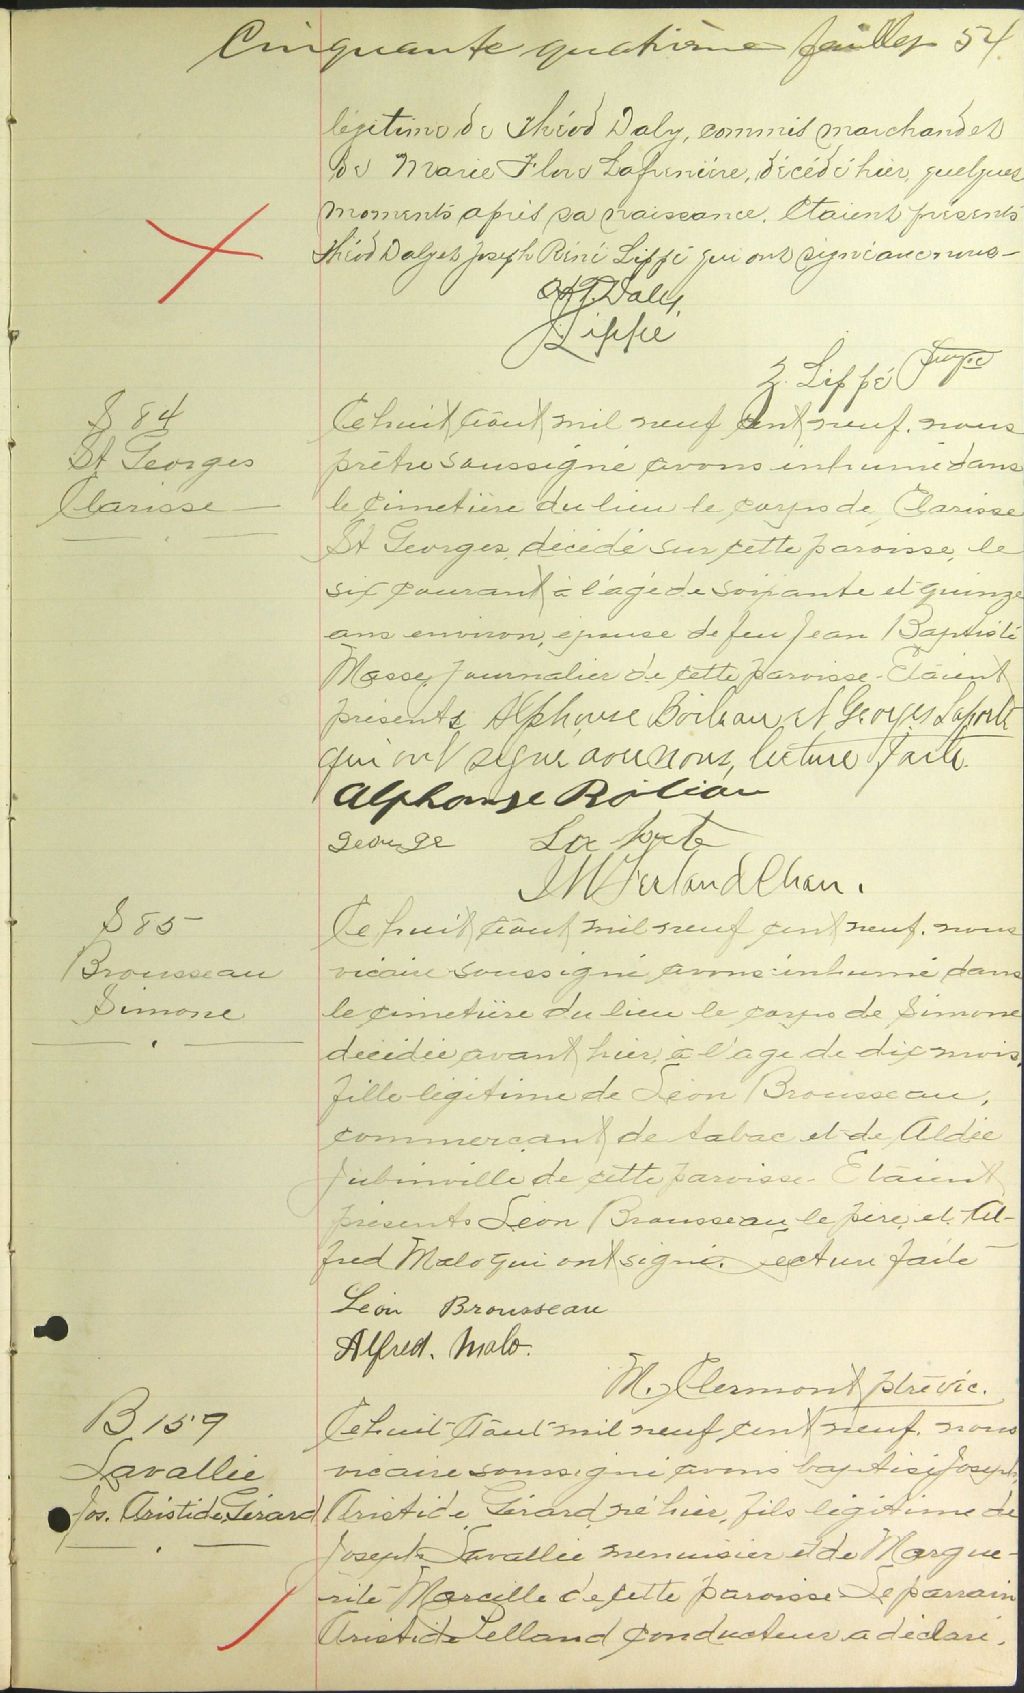 Cinquante quatrième feuillet 54.
légitime de Théod Daly, commis marchand et
de Marie Flore Lafrenière, décédé hier, quelques
moments après sa naissance. Etaient présents
Théod Daly et Joseph Réné Lippé qui ont signé avec nous —
Daly,
Lippé
Z. Lippé
S 84
St Georges
Clarisse
Ce huit Août mil neuf cent neuf. nous
prêtre soussigné avons inhumé dans
le cimetière du lieu le corps de Clarisse
St Georges, décédé sur cette paroisse, le
six courant à l'âge de soixante et quinze
ans environ, épouse de feu Jean Baptiste
Masse, journalier de cette paroisse - Etaient
présents Alphonse Boileau et Georges Laporte
qui ont signé avec nous, lecture faite.
Alphonse Boileau
George La porte
Ferland Chan.
S 85
Brousseau
Simone
Ce huit Août mil neuf cent neuf. nous
vicaire soussigné avons inhumé dans
le cimetière du lieu le corps de Simone
décédée avant hier, à l'age de dix mois,
fille légitime de Léon Brousseau,
commerçant de tabac et de Aldée
Jubinville de cette paroisse - Etaient
présents Léon Brousseau, le père, et Al-
fred Malo qui ont signé. Lecture faite
Léon Brousseau
Alfred. Malo.
M. Clermont ptre vic.
B 159
Lavallée
Jos. Aristide Gérard
Ce huit Août mil neuf cent neuf. nous
vicaire soussigné avons baptisé Joseph,
Aristide Gérard, né hier, fils légitime de
Joseph Lavallée menuisier et de Margue-
rite Marcille de cette paroisse - Le parrain
Aristide Pelland conducteur a déclaré.